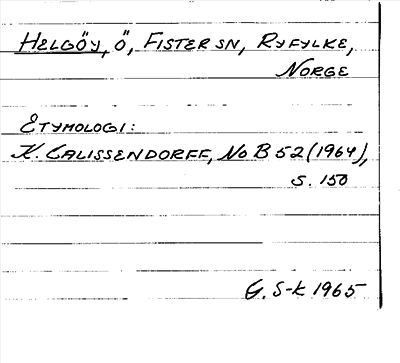 Helgöy, ö, Fister sn, Ryfylke,
Norge
Etymologi:
K. Calissendorff, NoB 52 (1964),
s. 150
G. S-k 1965